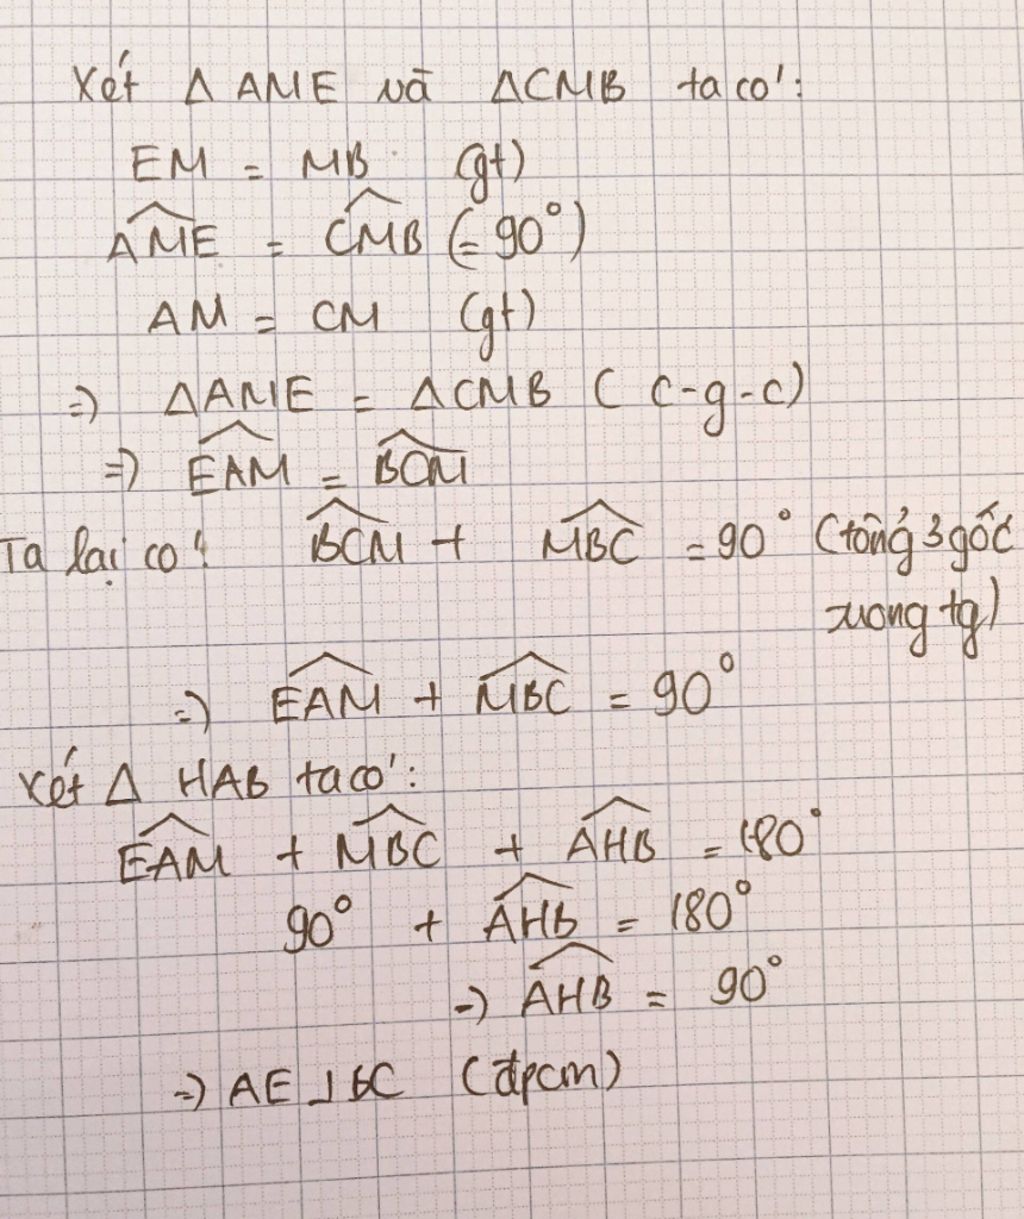 Xét Δ AME và ΔCMB ta có:
EM = MB (gt)
\widehat{AME} = \widehat{CMB} (= 90°)
AM = CM (gt)
=) ΔAME = ΔCMB ( c-g-c)
=) \widehat{EAM} = \widehat{BCM}
Ta lại có: \widehat{BCM} + \widehat{MBC} = 90° (tổng 3 gốc
xuong tg)
=) \widehat{EAM} + \widehat{MBC} = 90°
Xét Δ HAB ta có:
\widehat{EAM} + \widehat{MBC} + \widehat{AHB} = 180°
90° + \widehat{AHB} = 180°
=) \widehat{AHB} = 90°
=) AE ⊥ BC (đpcm)